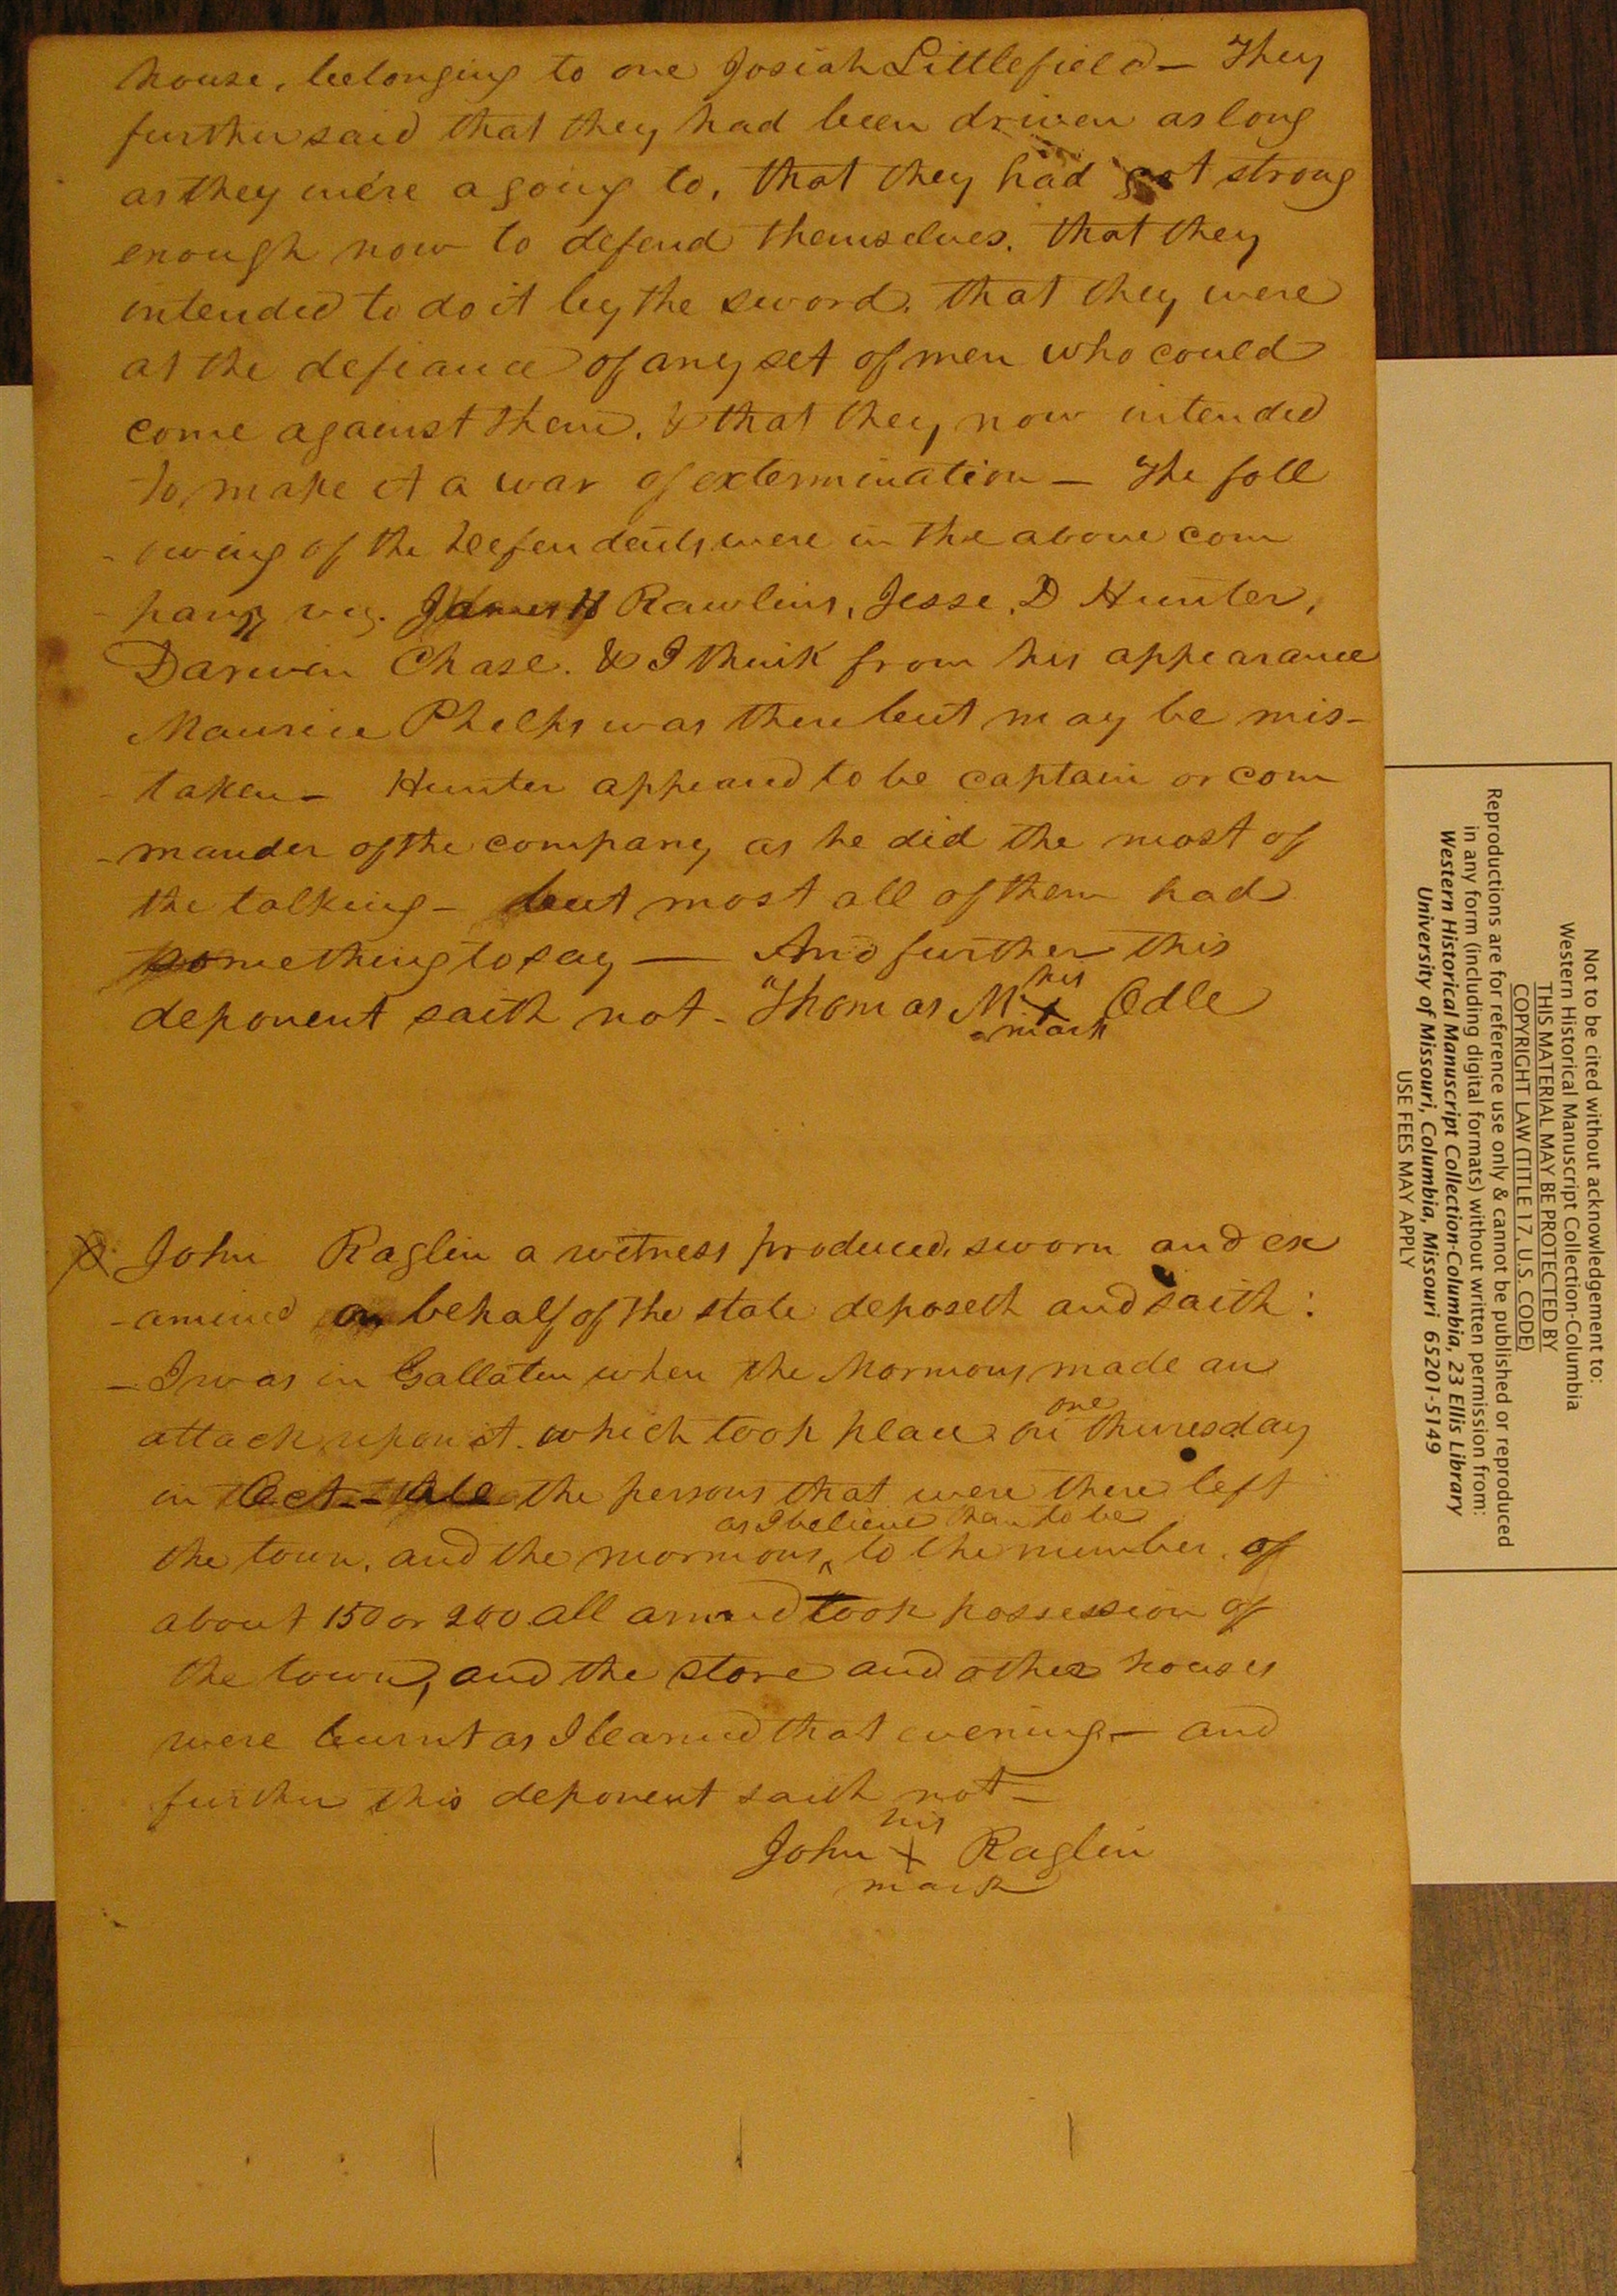 house, belonging to one Josiah Littlefield — They
further said that they had been driven as long
as they were a going to, that they had got strong
enough now to defend themselves. that they
intended to do it by the sword. that they were
at the defiance of any set of men who could
come against them. & that they now intended
to make it a war of extermination — The foll
-owing of the Defendents were in the above com
-pany viz. James H Rawlins, Jesse. D Hunter,
Darwin Chase. & I think from his appearance
Maurice Phelps was there but may be mis-
-taken — Hunter appeared to be captain or com
-mander of the company as he did the most of
the talking — but most all of them had
something to say — And further this
his
deponent saith not - Thomas M. X Odle
mark
John Raglin a witness produced, sworn and ex
-amined on behalf of the state deposeth and saith:
- I was in Gallaten when the Mormons made an
one
attack upon it. which took place on thuresday
in Oct. — the persons that were there left
as I believe them to be
the town, and the mormons ^ to the number of
about 150 or 200 all armed took possession of
the town, and the store and other houses
were burnt as I learned that evening — and
further this deponent saith not —
his
John + Raglin
mark
Not to be cited without acknowledgement to:
Western Historical Manuscript Collection-Columbia
THIS MATERIAL MAY BE PROTECTED BY
COPYRIGHT LAW (TITLE 17, U.S. CODE)
Reproductions are for reference use only & cannot be published or reproduced
in any form (including digital formats) without written permission from:
Western Historical Manuscript Collection-Columbia, 23 Ellis Library
University of Missouri, Columbia, Missouri 65201-5149
USE FEES MAY APPLY